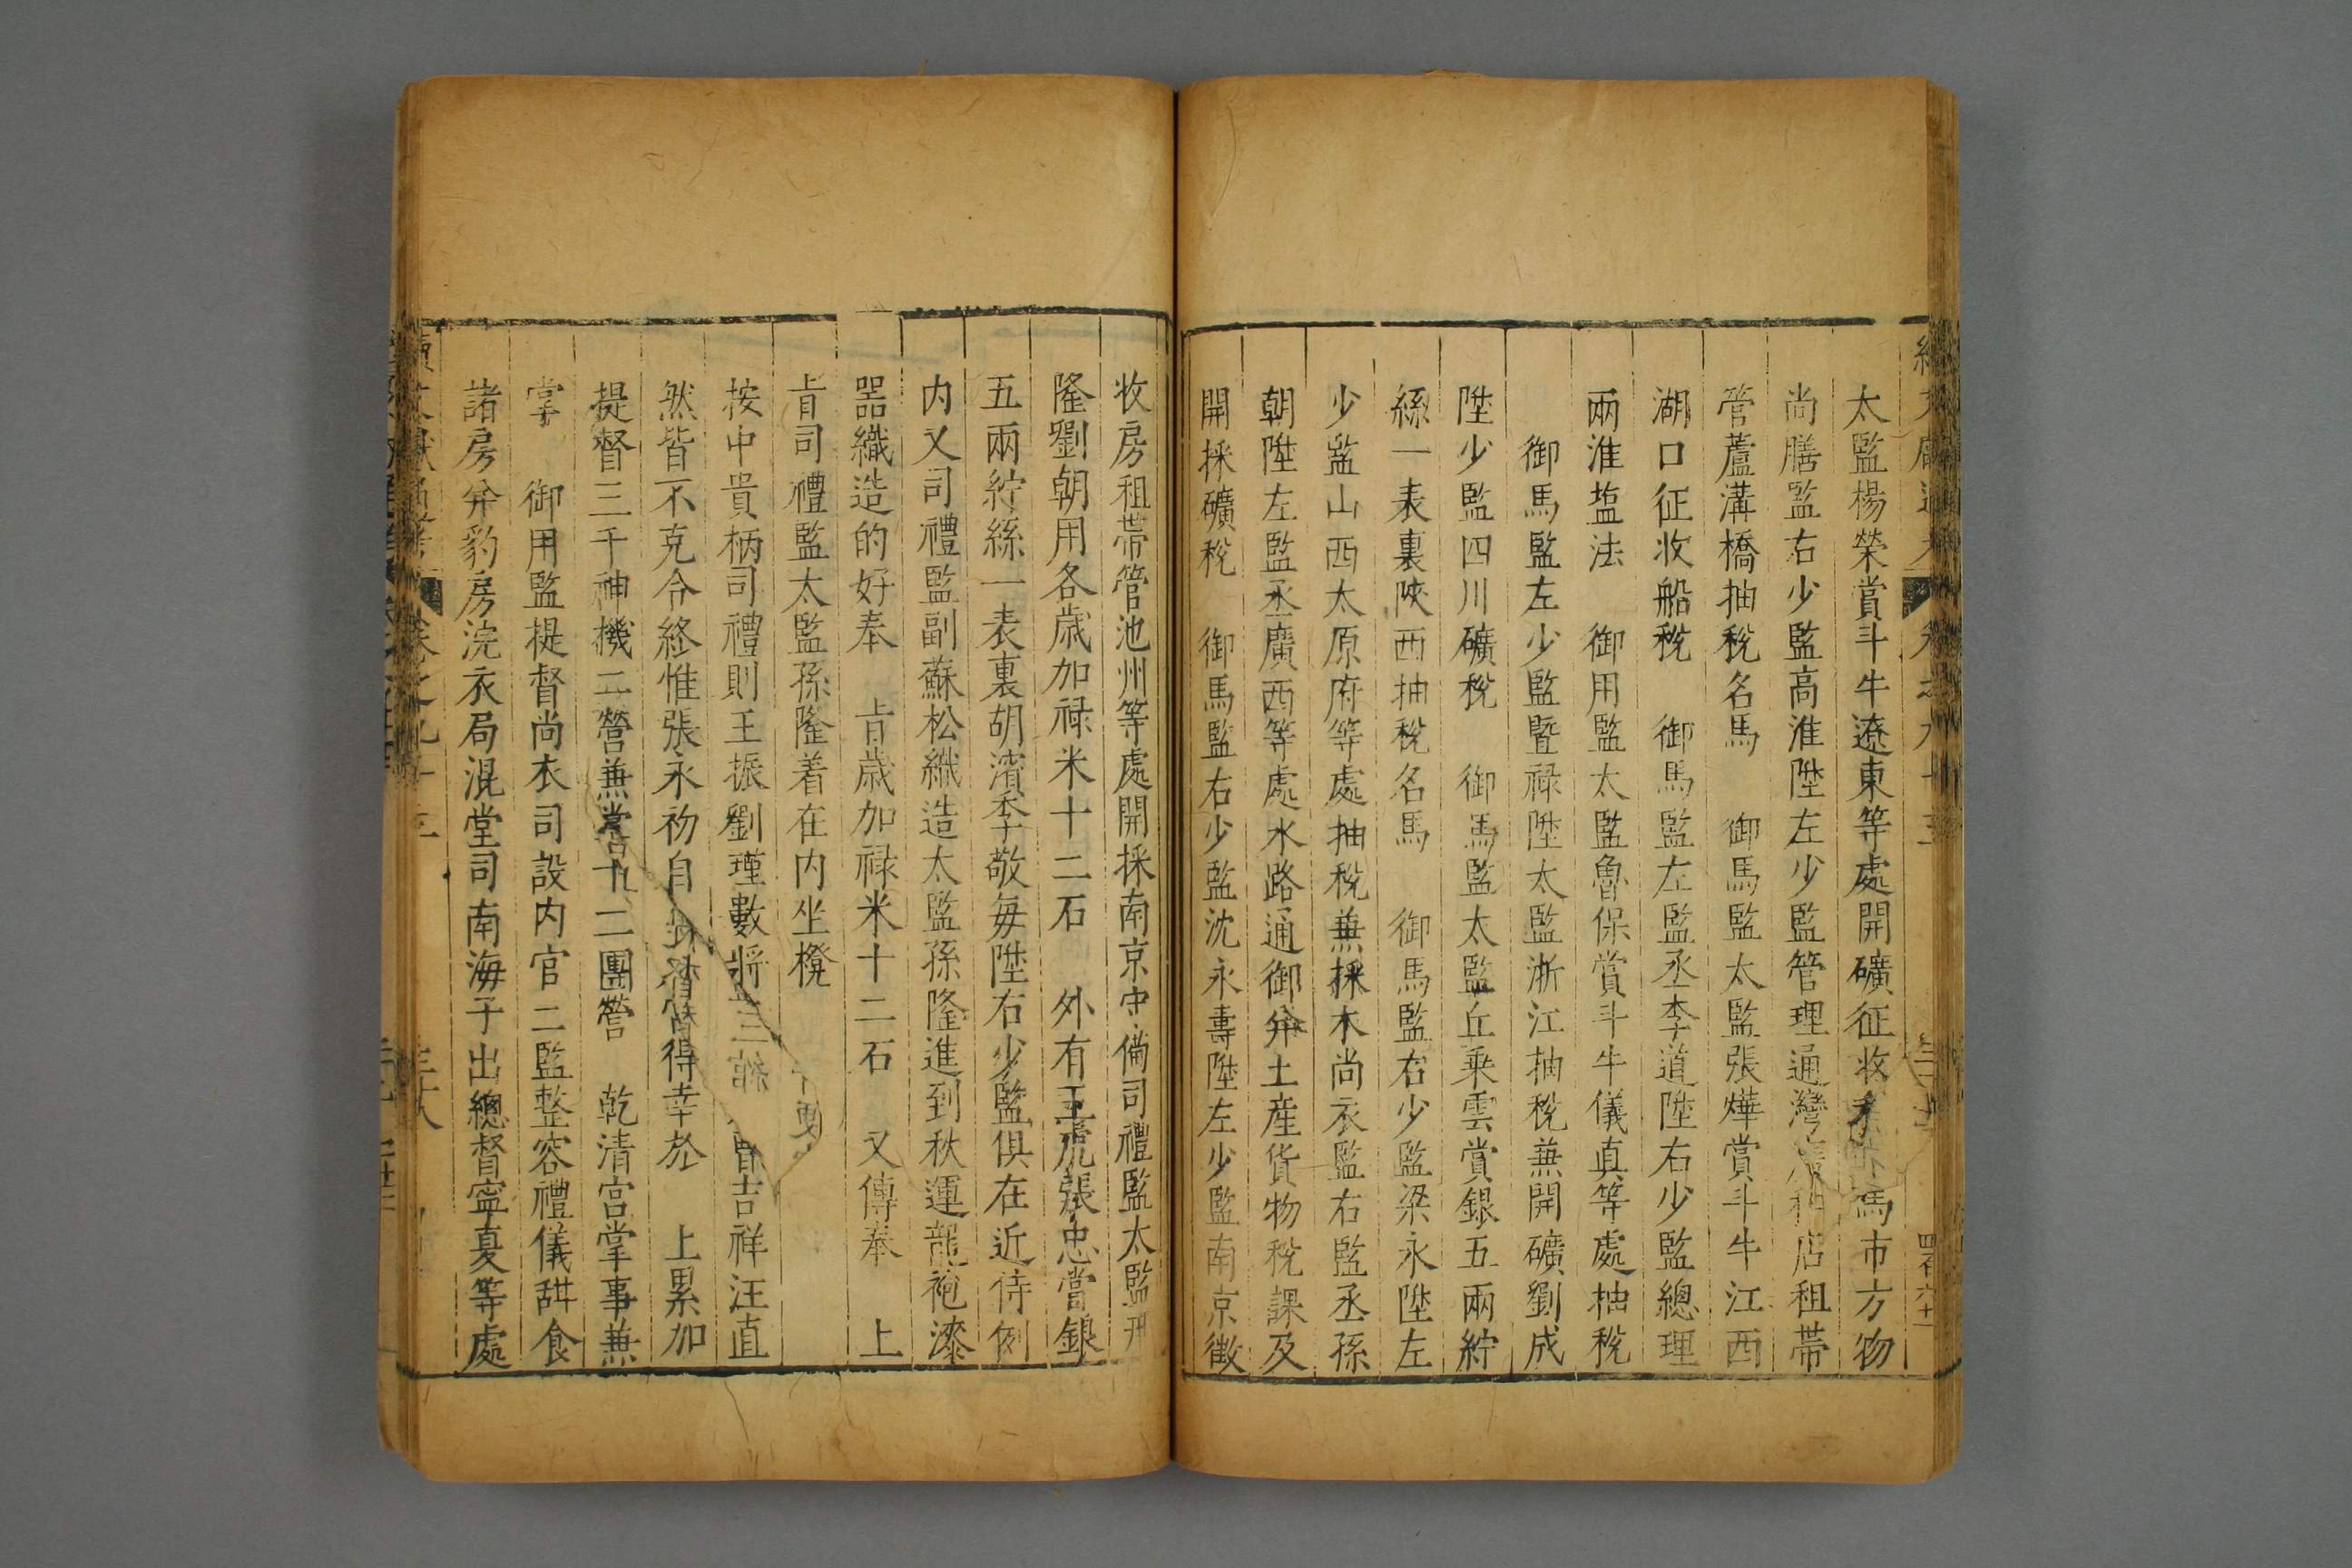 太監楊榮賞斗牛遼東等處開礦征收 馬市方物
尚膳監右少監高淮陞左少監管理通灣 店租帶
管蘆溝橋抽稅名馬 御馬監太監張燁賞斗牛江西
湖口征收船稅 御馬監左監丞李道陞右少監總理
兩淮塩法 御用監太監魯保賞斗牛儀真等處抽稅
御馬監左少監暨祿陞太監浙江抽稅兼開礦劉成
陞少監四川礦稅 御馬監太監丘乘雲賞銀五兩紵
絲一表裏陝西抽稅名馬 御馬監右少監梁永陞左
少監山西太原府等處抽稅兼採木尚衣監右監丞孫
朝陞左監丞廣西等處水路通御并土產貨物稅課及
開採礦稅 御馬監右少監沈永壽陞左少監南京徵
收房租帶管池州等處開採南京守備司禮監太監邢
隆劉朝用各歲加祿米十二石 外有王虎張忠當銀
五兩紵絲一表裏胡濱李敬每陞右少監俱在近侍例
内又司禮監副蘇松織造太監孫隆進到秋運龍袍漆
器織造的好奉 旨歲加祿米十二石 又傳奉 上
旨司禮監太監孫隆着在内坐櫈
按中貴柄司禮則王振劉瑾數將三 曹吉祥汪直
然皆不克令終惟張永初自 得幸於 上累加
提督三千神機二營兼掌十二團營 乾清宮掌事兼
掌 御用監提督尚衣司設内官二監整容禮儀甜食
諸房并豹房浣衣局混堂司南海子出總督寧夏等處